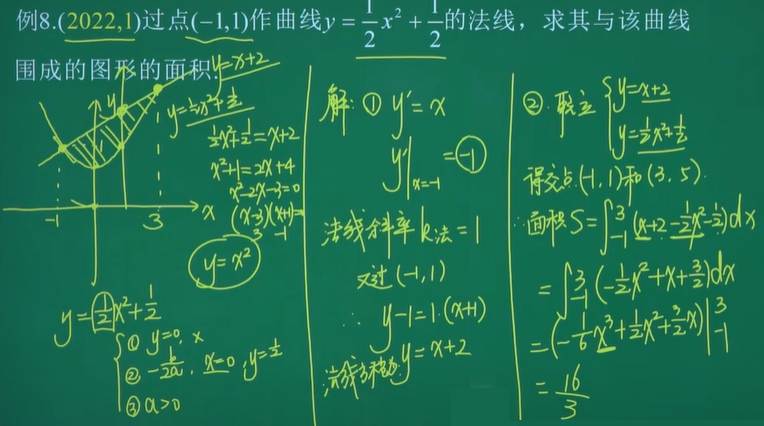 例8.(2022,1)过点(−1,1)作曲线y = 1/2 x² + 1/2的法线，求其与该曲线
围成的图形的面积.
y=x+2
y=½x²+½
½x²+½=x+2
x²+1=2x+4
x²-2x-3=0
(x-3)(x+1)=
3 -1
y
-1
3
x
y=x²
y=½x²+½
① y=0, x
② -b/2a, x=0, y=½
③ a>0
解: ① y'=x
y'|x=-1 =-1
法线斜率 k法=1
又过(-1,1)
∴ y-1=1·(x+1)
法线方程为: y=x+2
②. 联立 { y=x+2
y=½x²+½
得交点(-1,1)和(3,5).
∴面积S=∫₋₁³(x+2-½x²-½)dx
=∫₋₁³(-½x²+x+3/2)dx
=(-1/6x³+½x²+3/2x)|₋₁³
=16/3